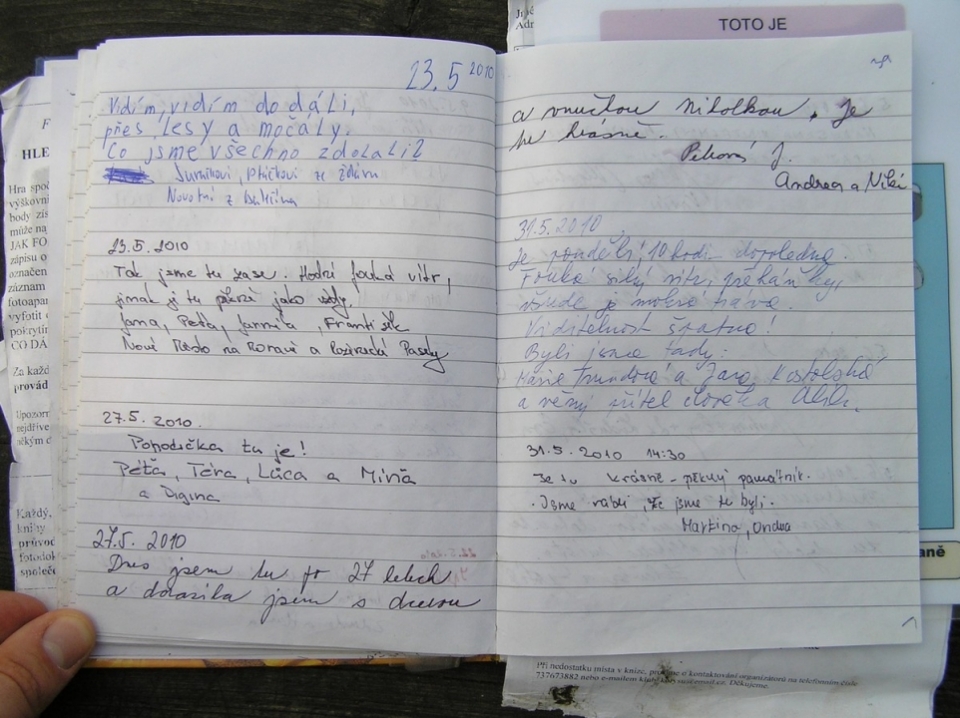 23.5 2010
Vidím, vidím do dáli,
přes lesy a močály.
Co jsme všechno zdolali?
Novotní z
23.5. 2010
Tak jsme tu zase. Hodně fouká vítr,
jinak je tu pěkně jako vždy.
Jana, Péťa, Jarmila, František
Nové Město na Moravě a Paseky
27.5. 2010.
Popodička tu je!
Péťa, Téra, Lůca a Míňa
a Digina
27.5. 2010
Dnes jsem tu po 27 letech
a dorazila jsem s dcerou
a vnučkou Nikolkou. Je
tu krásně.
J.
Andrea a Niki
31.5. 2010.
Je pondělí, 10 hodin dopoledne.
Fouká silný vítr, přeháňky,
všude je mokrá tráva.
Viditelnost špatná!
Byli jsme tady:
Marie a Jara Kostelská
a věrný přítel člověka
31.5. 2010 14:30
Je tu krásně - pěkný památník.
Jsme rádi, že jsme tu byli.
Martina, Ondra
TOTO JE
HLE
Hra spoč
výškovní
body zís
může na
JAK FO
zápisu o
označen
záznam
fotoapar
vyfotit c
pokrytín
CO DÁ
Za každ
provád
Upozorn
nejdříve
někým d
Každý,
knihy
průvod
fotodok
společe
aně
Při nedostatku místa v knize, prosíme o kontaktování organizátorů na telefonním čísle
737673882 nebo e-mailem Děkujeme.